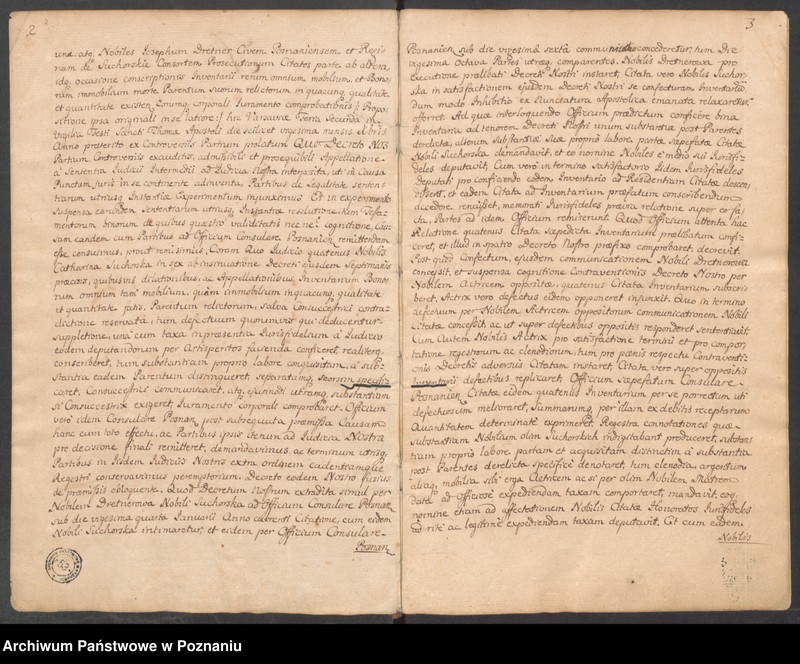 2
unæ. atq. Nobiles Josephum Dretner Civem Posnaniensem et Regi
nam de Suchorskie Consortem Prosecutionum Citatos parte ab altera,
idq. occasione conscriptionis Inventarii rerum omnium mobilium, et Bono
rum immobilium morte Parentum suorum relictorum in quacunq. qualitate
et quantitate existen. eorumq. corporali Juramento comprobationis
sitione ipsa originali in se latiore: hic Varsaviæ Feria Secunda in
Vigilia Festi Sancti Thomæ Apostoli die scilicet vigesima mensis Xbris
Anno præterito ex Controversiis Partium prolatum Quo Decreto Nos
Partium Controversiis exauditis, admissibili et prosequibili Appellatione
a Sententia Judicii Intermedii ad Judicia Nostra interposita, uti in Causa
Punctum Juris in se continente adinventa, Partibus de legalitate senten
tiarum utriusq. Instantiæ Experimentum injunximus Et in experimento
suspensa earundem Sententiarum utriusq. Instantiæ resolutione, cum Testa
mentorum binorum de quibus quæstio validitatis nec ne: cognitione, Cau
sam eandem cum Partibus ad Officium Consulare Posnanien. remittendam
esse censuimus, prout remisimus, Coram Quo Judicio quatenus Nobilis
Catharina Suchorska in sex ab insinuatione Decreti ejusdem Septimanis
præcisis, quibusvis dilationibus, ac Appellationibus Inventarium Bono
rum omnium tam mobilium, quam immobilium in quacunq. qualitate
et quantitate fatis Parentum relictorum, salva Consuccestrici contra-
dictione reservata, tum defectuum quorumvis qui deducentur
suppletione, una cum taxa in præsentia Jurisfidelium à Judicio
eodem deputandorum per Artisperitos facienda conficeret, realiterq.
conscriberet, tum substantiam proprio labore conquisitam, à sub-
stantia eadem Parentum distingueret separatamq. seorsim specifi-
caret, Consuccestrici communicaret, atq. ejusmodi utramq. substantiam
si Consuccestrix exigeret Juramento corporali comprobaret. Officium
vero idem Consulare Posnan. post subsequuta præmissa Causam
hanc cum toto effectu, ac Partibus ipsis iterum ad Judicia Nostra
pro decisione finali remitteret, demandavimus ac terminum utrisq.
Partibus in Iisdem Judiciis Nostris extra ordinem cadentiamq.
Regestri conservavimus peremptorium Decreto eodem Nostro fusius
de præmissis obloquente. Quod Decretum Nostrum extradita simul per
Nobilem Dretnerowa Nobili Suchorska ad Officium Consulare Posnan.
sub die vigesima quarta Januarii Anno currenti Citatione, cum eidem
Nobili Suchorska intimaretur, et eidem per Officium Consulare
Posnan.
53
3
Posnanien. sub die vigesima sexta concederetur, tum Die
vigesima Octava Partes utræq. comparentes. Nobilis Dretnerowa pro
executione prællibati Decreti Nostri instaret, Citata vero Nobilis Suchor-
ska in satisfactionem ejusdem Decreti Nostri se confecturam Inventarium
dum modo Inhibitio ex Nunciatura Apostolica emanata relaxaretur
offerret. Ad quæ interloquendo Officium prædictum conficere bina
Inventaria ad tenorem Decreti Nostri unum substantiæ post Parentes
derelictæ, alterum substantiæ suæ proprio labore partæ sæpefata Citatæ
Nobili Suchorska demandavit, et eo nomine Nobiles è medio sui Jurisfi-
deles deputavit, Cum vero in termino satisfactorio Iidem Jurisfideles
deputati pro conficiendo eodem Inventario ad Residentiam Citatæ descen-
dissent, et eadem Citata ad Inventarium præfatum conscribendum
accedere, renuisset, memorati Jurisfideles prævia relatione super eo fa-
cta, Partes ad idem Officium remiserunt. Quod Officium attenta hac
Relatione quatenus Citata sæpedicta Inventarium prælibatum confi-
ceret, et illud in spatio Decreto Nostro præfixo comprobaret decrevit.
Post quod Confectum, ejusdem communicationem Nobili Dretnerowa
concessit, et suspensa cognitione Contraventionis Decreto Nostro per
Nobilem Actricem oppositæ, quatenus Citata Inventarium subscri-
beret. Actrix vero defectus eidem opponeret injunxit. Quo in termino
defectuum per Nobilem Actricem oppositorum communicationem Nobili
Citatæ concessit, ac ut super defectibus oppositis responderet sententiavit.
Cum Autem Nobilis Actrix pro satisfactione termini et pro compor-
tatione regestrorum ac clenodiorum, tum pro pænis respectu Contraventi-
onis Decretis adversus Citatam instaret, Citata vero super oppositis
Inventarii defectibus replicaret Officium sæpefatum Consulare
Posnanien. Citatæ eidem quatenus Inventarium per se porrectum uti
defectuosum melioraret, Summarumq. per illam ex debitis receptarum
Quantitatem determinate exprimeret, Regestra connotationes quæ
substantiam Nobilium olim Suchorskich indigitabant produceret, substan
tiam proprio labore, partam et acquisitam distinctim à substantia
post Parentes derelicta specifice denotaret, tum clenodia, argentum
aliaq. mobilia sibi erga Actricem ac si per olim Nobilem Matrem
data ad officiose expediendam taxam comportaret, mandavit, eoq.
nomine etiam ad affectationem Nobilis Citatæ Honoratos Jurisfideles
ad rite ac legitime expediendam taxam deputavit. Et cum eadem
Nobilis
Archiwum Państwowe w Poznaniu
szukajwarchiwach.gov.pl